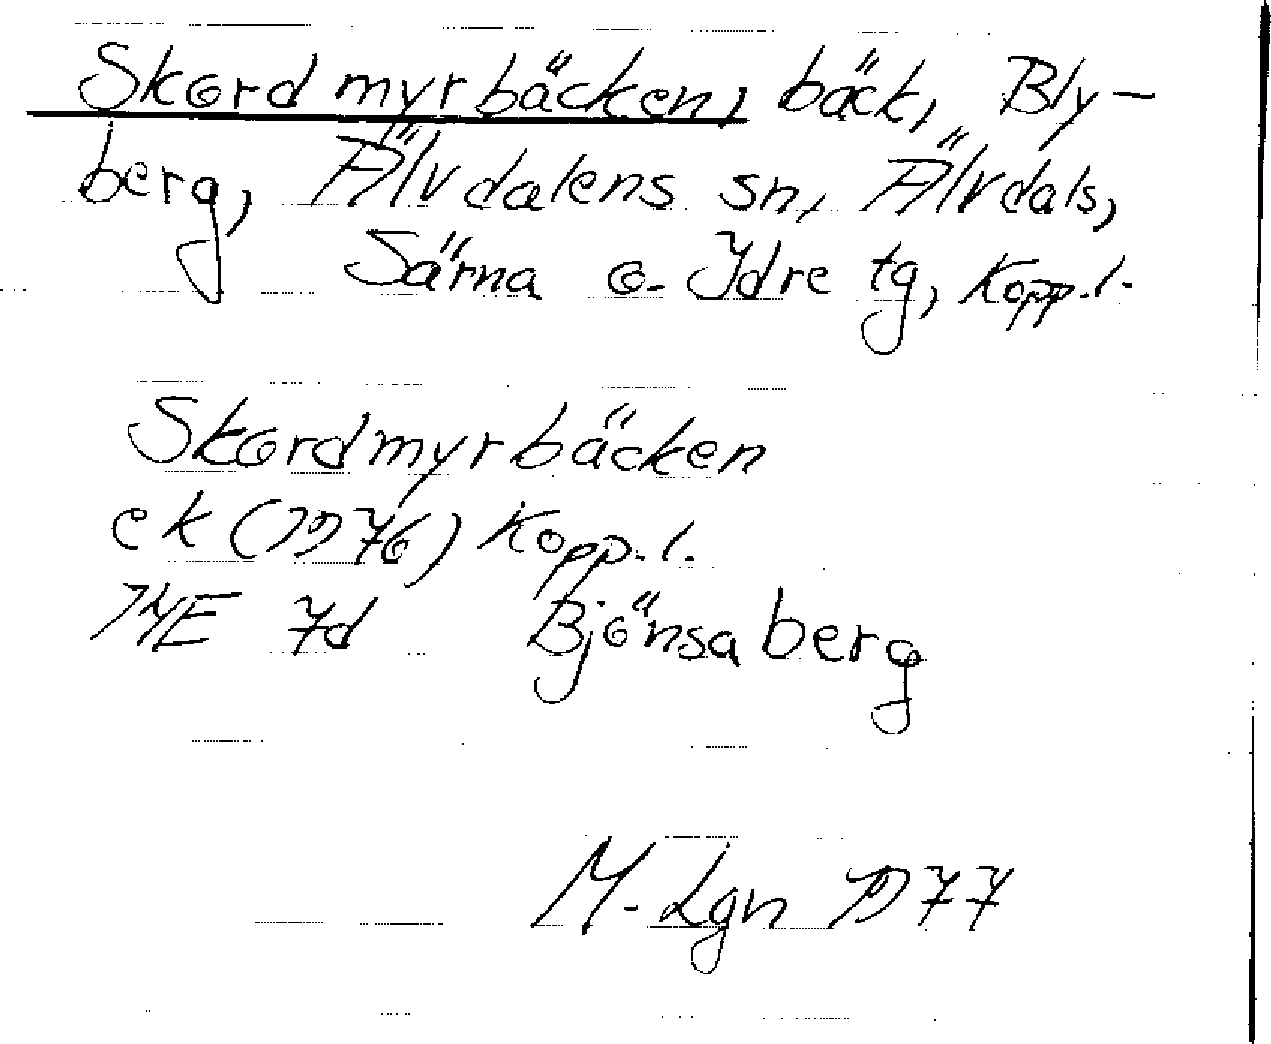 Skordmyrbäcken, bäck, Bly-
berg, Älvdalens sn, Älvdals,
Särna o. Idre tg, Kopp.l.
Skordmyrbäcken
ek (1976) Kopp.l.
14E 7d Bjönsaberg
M. Lgn 1977